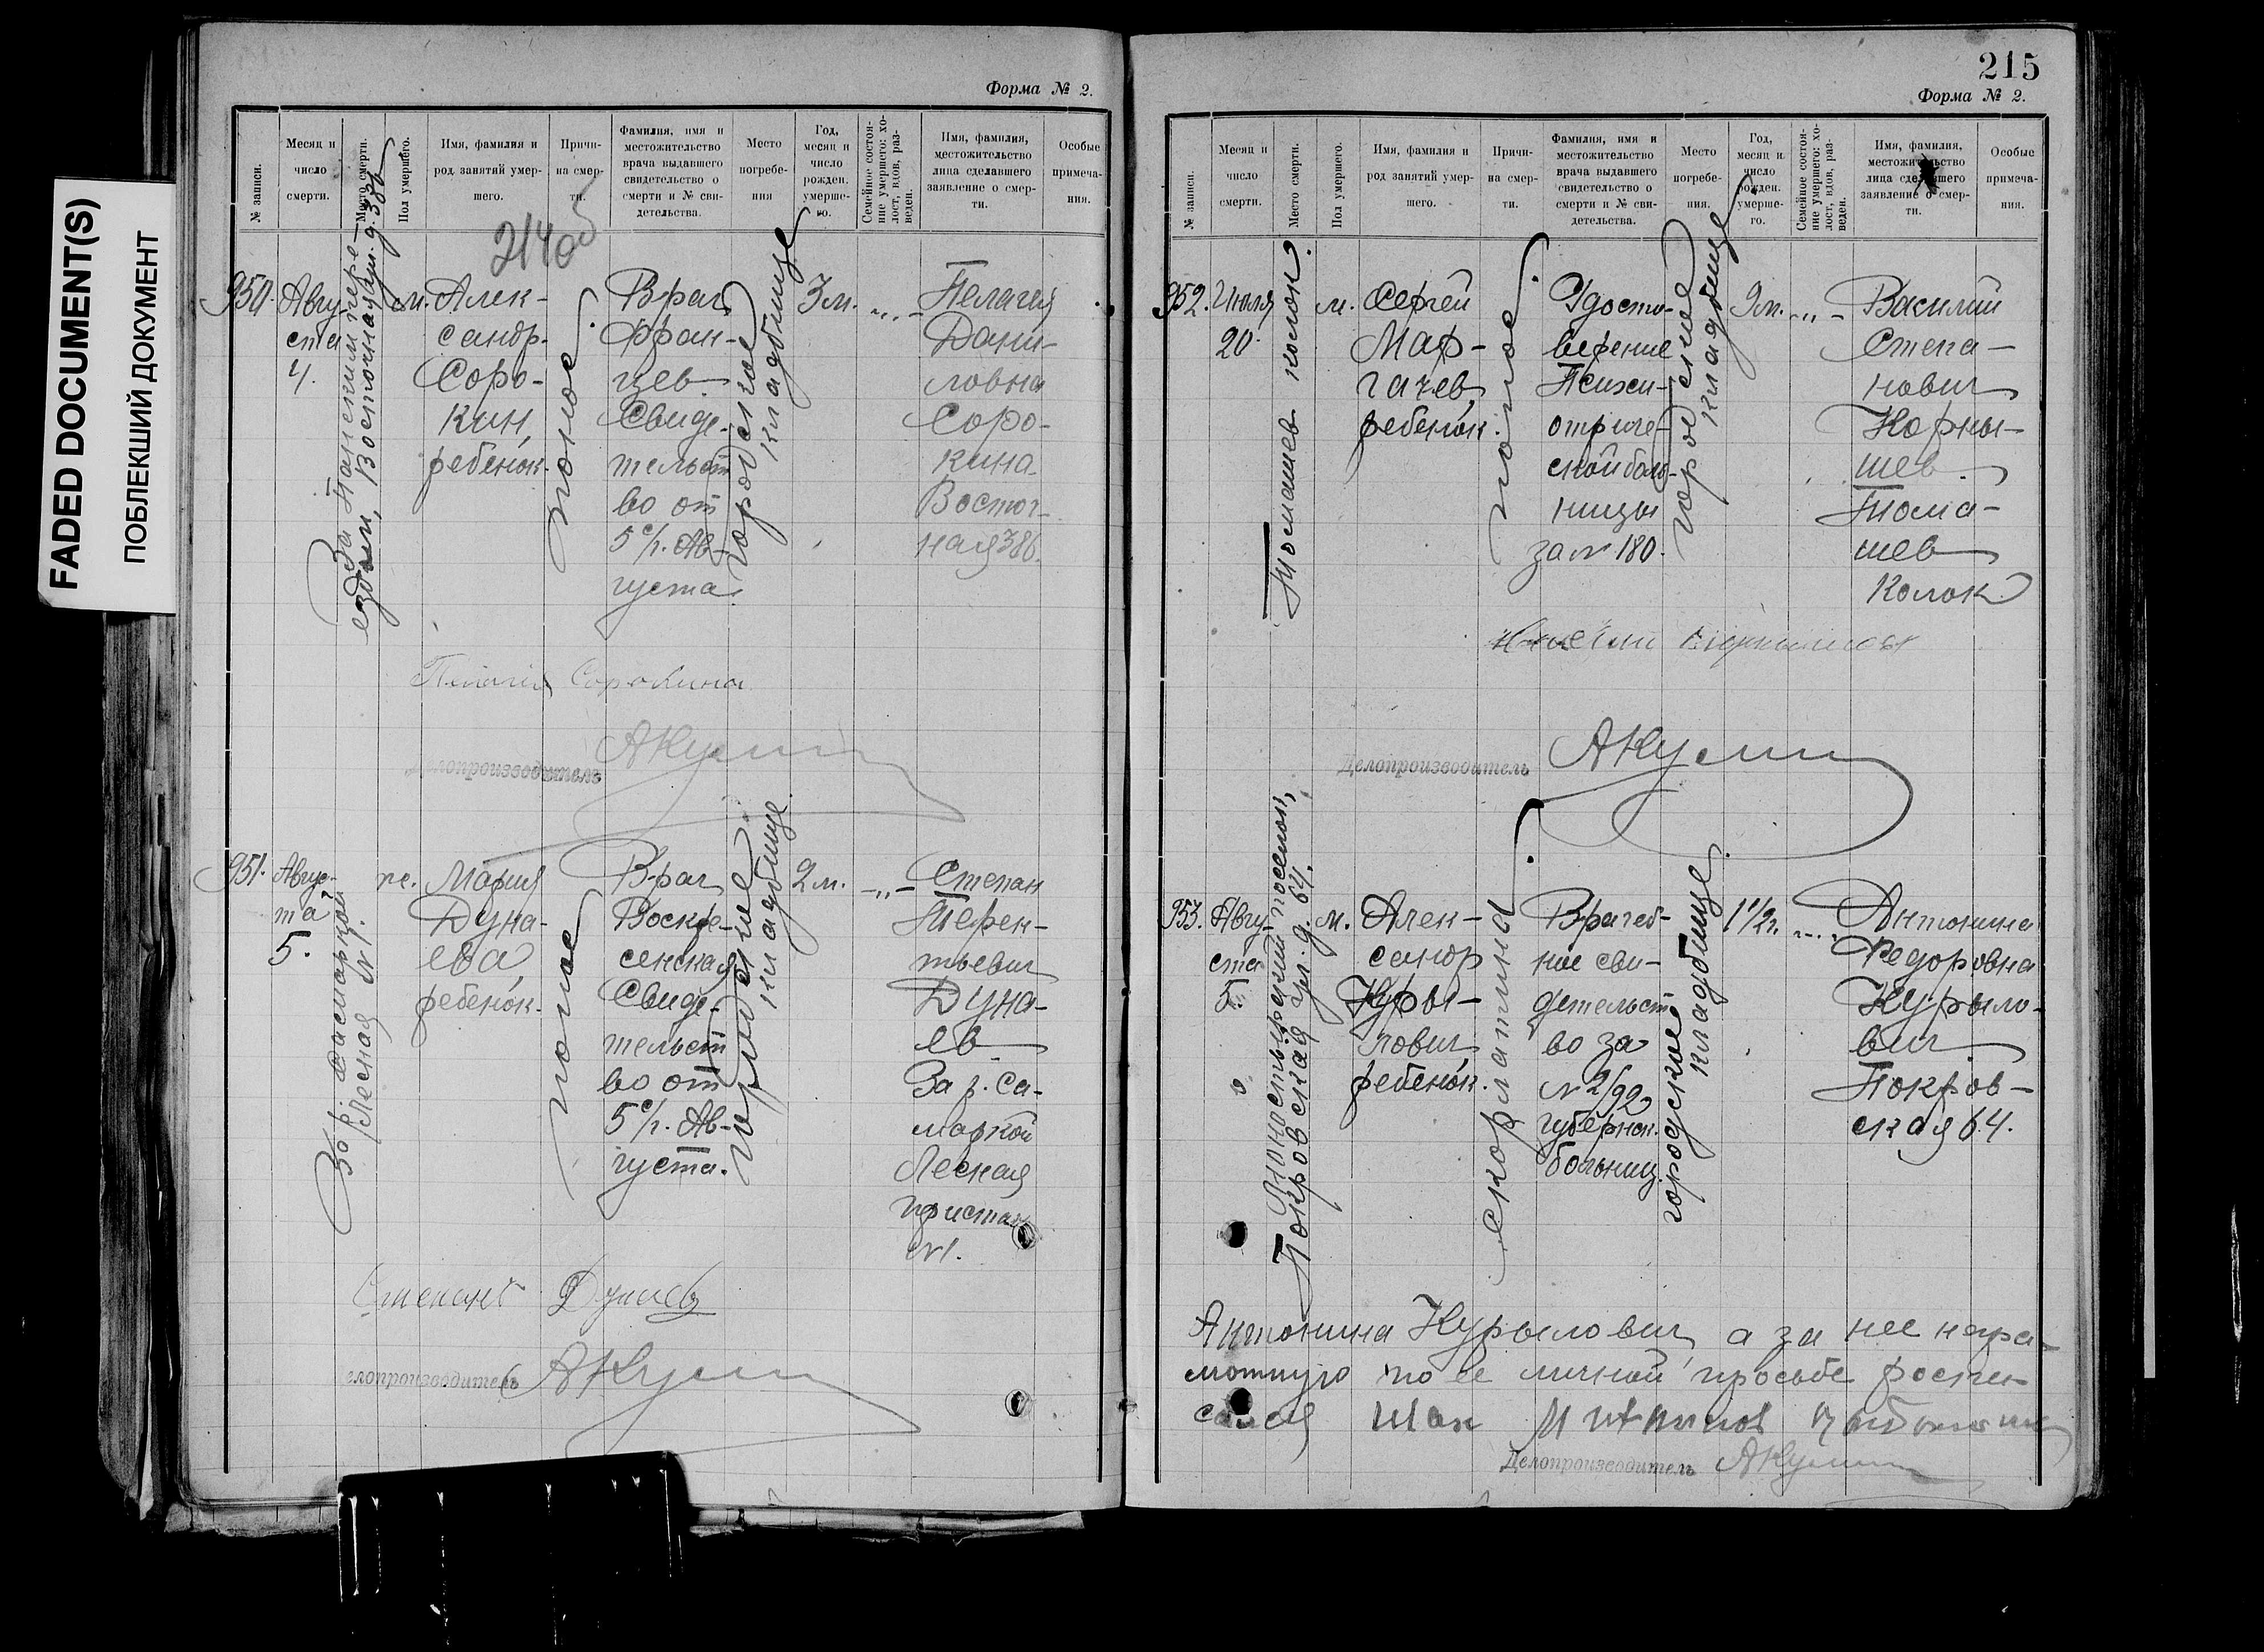 FADED DOCUMENT(S)
ПОБЛЕКШИЙ ДОКУМЕНТ
Форма № 2.
№ записи.
Месяц и число смерти.
Место смерти.
Пол умершего.
Имя, фамилия и род занятий умершего.
Причина смерти.
Фамилия, имя и местожительство врача выдавшего свидетельство о смерти и № свидетельства.
Место погребения
Год, месяц и число рожден. умершего.
Семейное состояние умершего: холост, вдов, разведен.
Имя, фамилия, местожительство лица сделавшего заявление о смерти.
Особые примечания.
214об
950.
Авгу-
ста
4.
За Панским пере-
ездом, Восточная ул. д. 386
м.
Алек-
сандр
Соро-
кин,
ребенок.
понос.
Врач
Фран-
цев
Свиде-
тельст
во от
5 с/г. Ав-
густа.
городское
кладбище
3 м.
-„-
Пелагея
Дани-
ловна
Соро-
кина
Восточ-
ная 386.
Сорокина
Делопроизводитель
951.
Авгус-
та
5.
За р. Самаркой
Лесная № 1.
ж.
Мария
Дуна-
ева,
ребенок.
понос
Врач
Воскре-
сенская
Свиде-
тельст
во от
5 с/г. Ав-
густа.
городское
кладбище
2 м.
-„-
Степан
Терен-
тьевич
Дуна-
ев
За р. Са-
маркой
Лесная
пристань
№ 1.
Степанъ Дунаев
елопроизводитель
215
Форма № 2.
№ записи.
Месяц и число смерти.
Место смерти.
Пол умершего.
Имя, фамилия и род занятий умершего.
Причина смерти.
Фамилия, имя и местожительство врача выдавшего свидетельство о смерти и № свидетельства.
Место погребения.
Год, месяц и число рожден. умершего.
Семейное состояние умершего: холост, вдов, разведен.
Имя, фамилия, местожительство лица сделавшего заявление о смерти.
Особые примечания.
952.
Июля
20.
Томашев колок.
м.
Сергей
Мар-
гачев,
ребенок.
понос.
Удосто-
верение
Психи-
атриче-
ской боль-
ницы
за № 180.
городское
кладбище
9 м.
-„-
Василий
Степа-
нович
Корны-
шев
Тома-
шев
Колок
Делопроизводитель
953.
Авгу-
ста
5.
Монастырский поселок,
Покровская ул. д. 64.
м.
Алек-
сандр
Куры-
лович,
ребенок.
скорлатина.
Врачеб-
ное сви-
детельст
во за
№ 2/92
губернск.
больниц.
городское
кладбище.
1 1/2 г.
-„-
Антонина
Федоровна
Курыло-
вич
Покров-
ская 64.
Антонина Курылович, а за нее негра-
мотную по ее личной просьбе роспи-
сался
Делопроизводитель